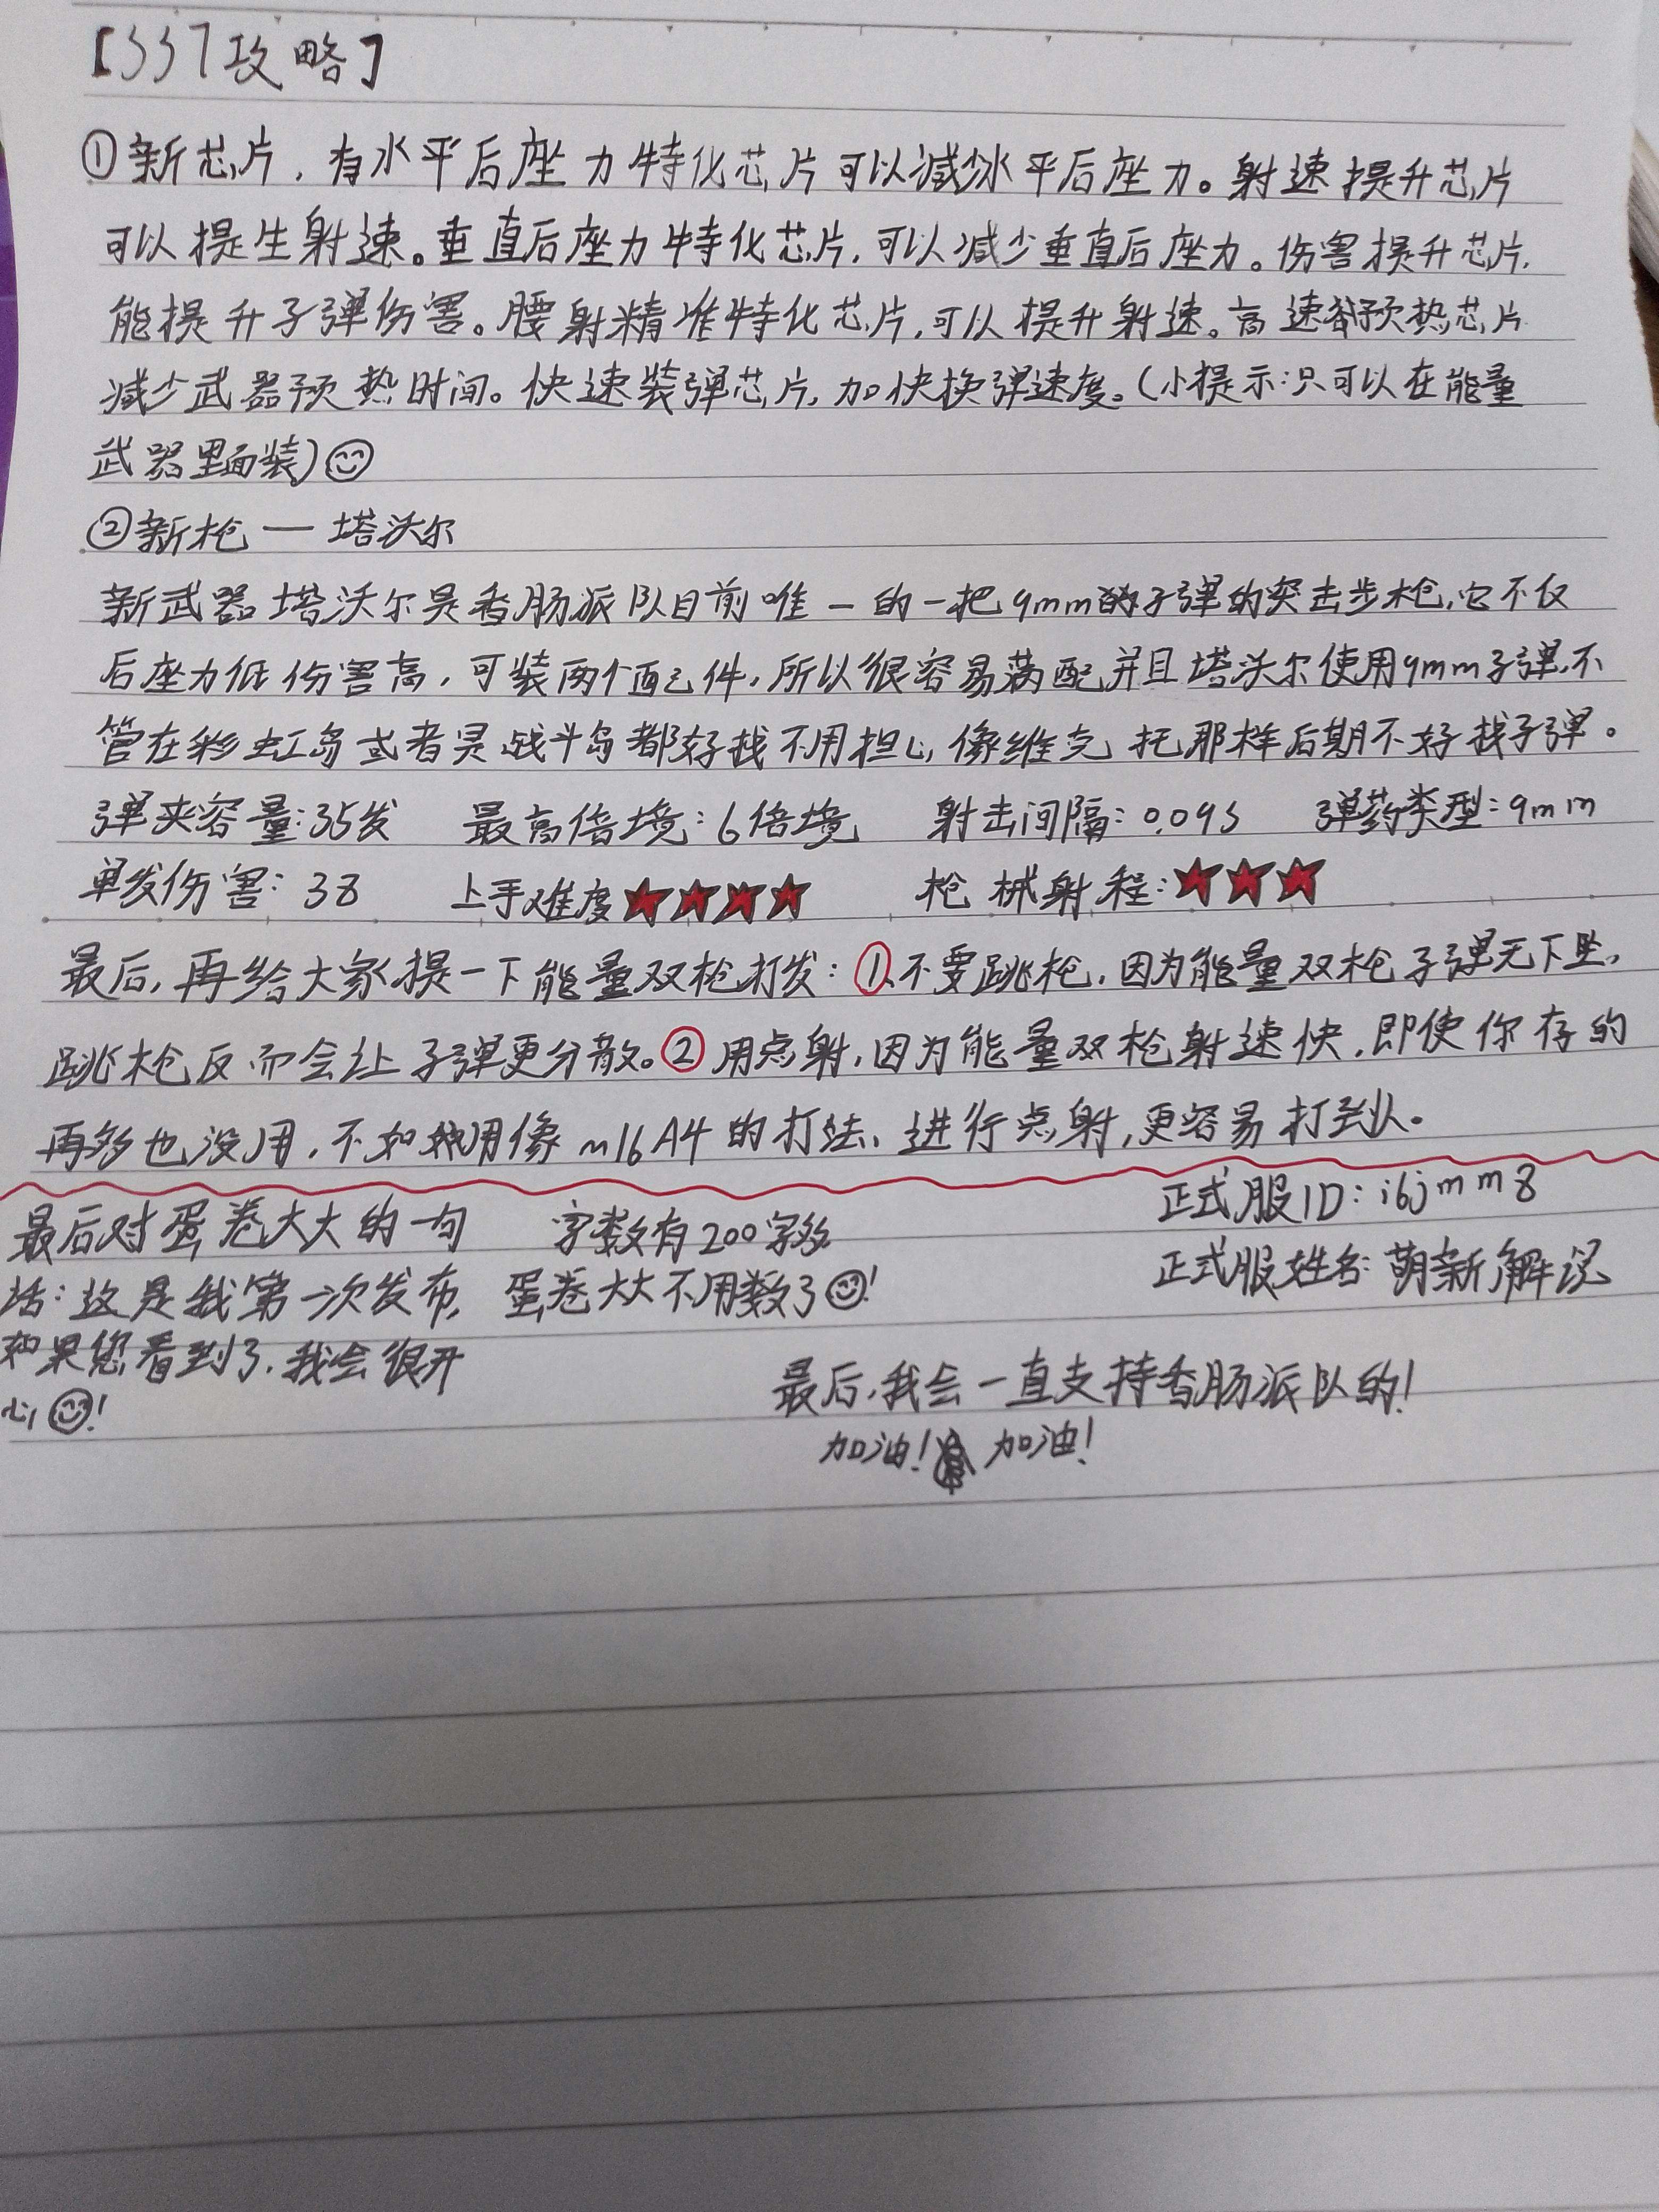 【337攻略】
①新芯片，有水平后座力特化芯片可以减少水平后座力。射速提升芯片
可以提生射速。垂直后座力特化芯片，可以减少垂直后座力。伤害提升芯片，
能提升子弹伤害。腰射精准特化芯片，可以提升射速。高速预热芯片
减少武器预热时间。快速装弹芯片，加快换弹速度。（小提示：只可以在能量
武器里面装）
②新枪—塔沃尔
新武器塔沃尔是香肠派队目前唯一的一把9mm的子弹的突击步枪，它不仅
后座力低伤害高，可装两个配件，所以很容易满配并且塔沃尔使用9mm子弹，不
管在彩虹岛或者灵战斗岛都好找不用担心像维克托那样后期不好找子弹。
弹夹容量：35发 最高倍境：6倍境 射击间隔：0.09s 弹药类型：9mm
单发伤害：38 上手难度★★★★ 枪械射程：★★★
最后，再给大家提一下能量双枪打发：①不要跳枪，因为能量双枪子弹无下坠，
跳枪反而会让子弹更分散。②用点射，因为能量双枪射速快，即使你存的
再多也没用，不如用像m16A4的打法、进行点射，更容易打到头。
最后对蛋卷大大的一句
话：这是我第一次发布，
如果您看到了，我会很开
心！
字数有200字多
蛋卷大大不用数了！
正式服ID：i6jmm8
正式服姓名：萌新解说
最后，我会一直支持香肠派队的！
加油！加油！